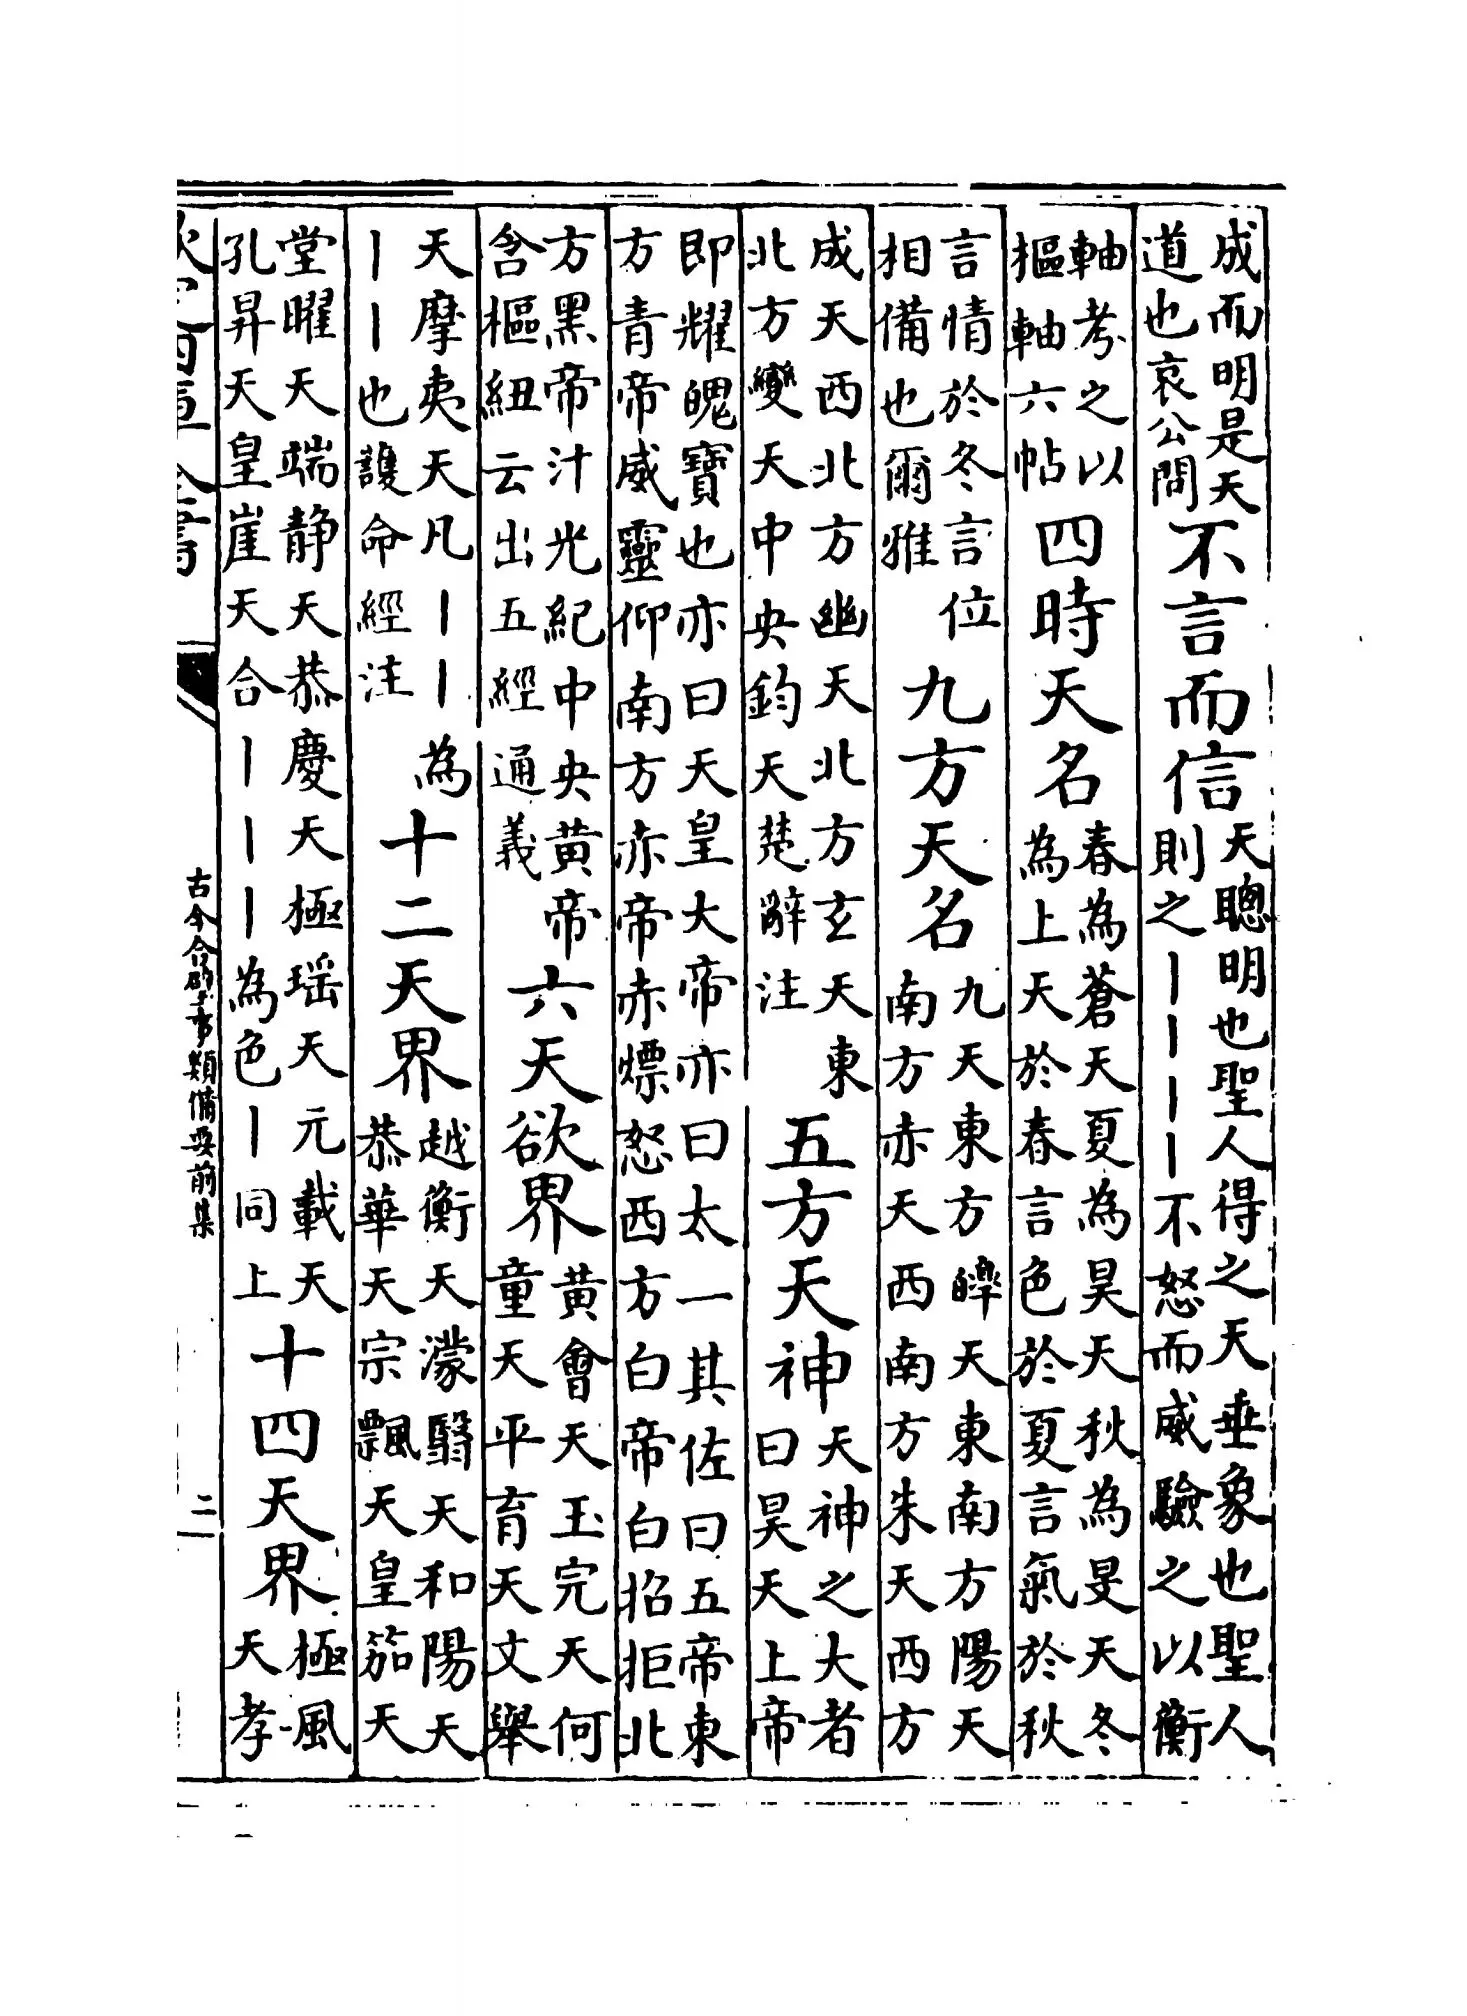 成而明是天
道也哀公問
不言而信
天聰明也聖人得之天垂象也聖人
則之丨丨丨丨不怒而威驗之以衡
軸考之以
樞軸六帖
四時天名
春為蒼天夏為昊天秋為旻天冬
為上天於春言色於夏言氣於秋
言情於冬言位
相備也爾雅
九方天名
九天東方皥天東南方陽天
南方赤天西南方朱天西方
成天西北方幽天北方玄天東
北方變天中央鈞天楚辭注
五方天神
天神之大者
曰昊天上帝
即耀魄寶也亦曰天皇大帝亦曰太一其佐曰五帝東
方青帝威靈仰南方赤帝赤熛怒西方白帝白招拒北
方黑帝汁光紀中央黄帝
含樞紐云出五經通義
六天欲界
黄會天玉完天何
童天平育天文舉
天摩夷天凡丨丨為
丨丨也護命經注
十二天界
越衡天濛翳天和陽天
恭華天宗飄天皇笳天
堂曜天端静天恭慶天極瑶天元載天
孔昇天皇崖天合丨丨丨為色丨同上
十四天界
極風
天孝
欽定四庫全書
古今合璧事類備要前集
二